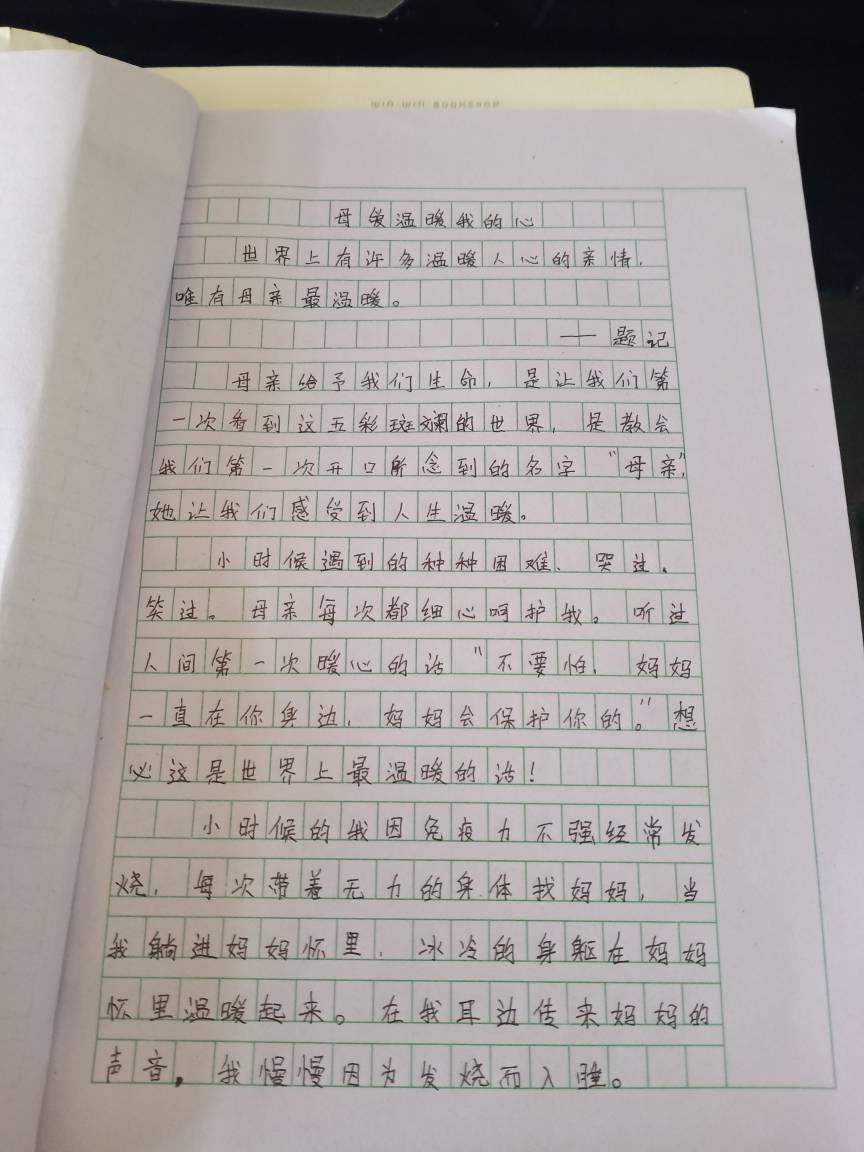 WIN-WIN BOOKSHOP
母爱温暖我的心
世界上有许多温暖人心的亲情，
唯有母亲最温暖。
——题记
母亲给予我们生命，是让我们第
一次看到这五彩斑斓的世界，是教会
我们第一次开口所念到的名字“母亲”，
她让我们感受到人生温暖。
小时候遇到的种种困难、哭过、
笑过。母亲每次都细心呵护我。听过
人间第一次暖心的话“不要怕，妈妈
一直在你身边，妈妈会保护你的。”想
必这是世界上最温暖的话！
小时候的我因免疫力不强经常发
烧，每次带着无力的身体找妈妈，当
我躺进妈妈怀里，冰冷的身躯在妈妈
怀里温暖起来。在我耳边传来妈妈的
声音，我慢慢因为发烧而入睡。